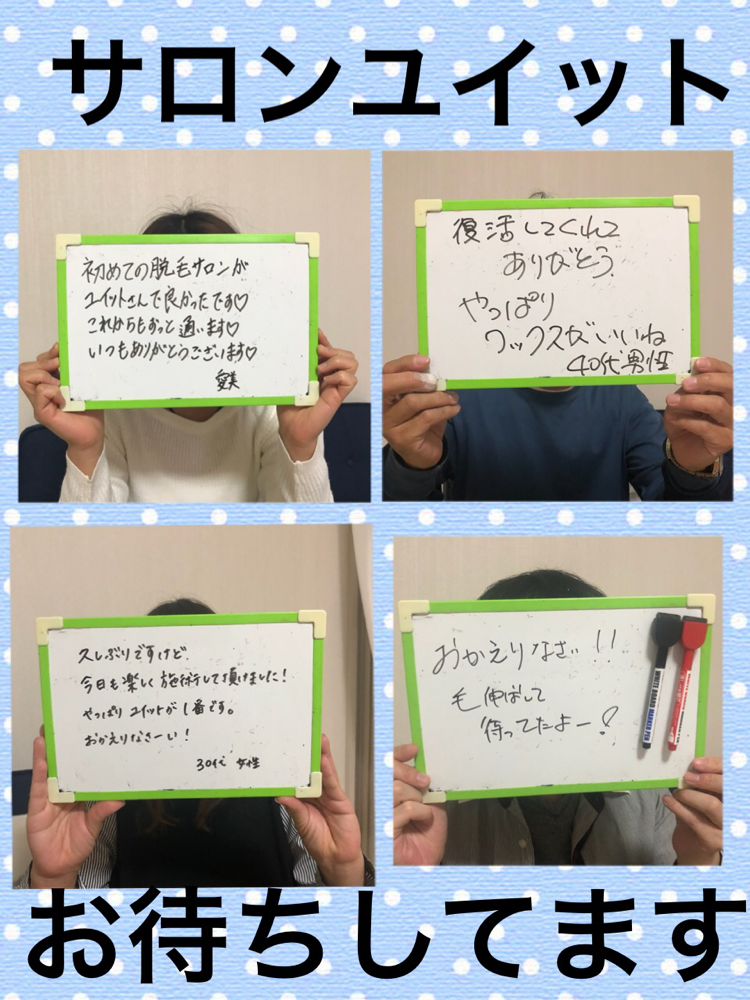 サロンユイット
初めての脱毛サロンが
ユイットさんで良かったです♡
これからもずっと通います♡
いつもありがとうございます♡
愛美
復活してくれて
ありがとう
やっぱり
ワックスがいいね
40代男性
久しぶりですけど
今日も楽しく施術して頂けました!
やっぱりユイットが1番です。
おかえりなさーい!
30代 女性
おかえりなさい!!
毛伸ばして
待ってたよー!
WHITE BOARD
MARKER PEN
お待ちしてます